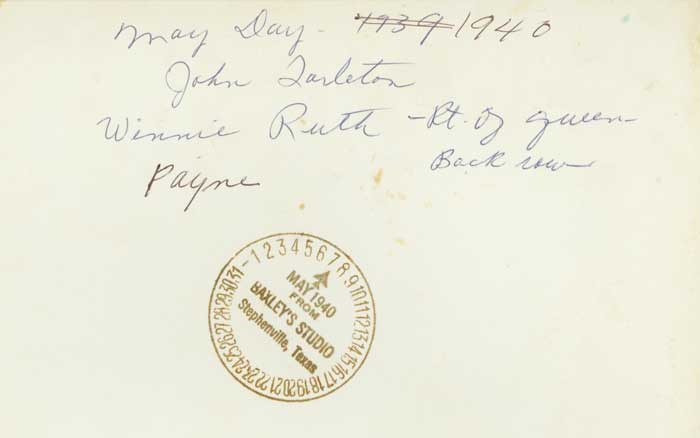 May Day - 1939 1940
John Tarleton
Winnie Ruth - Rt. of queen -
Back row
Payne
1 2 3 4 5 6 7 8 9 10 11 12 13 14 15 16 17 18 19 20 21 22 23 24 25 26 27 28 29 30 31
MAY 1940
FROM
BAXLEY'S STUDIO
Stephenville, Texas